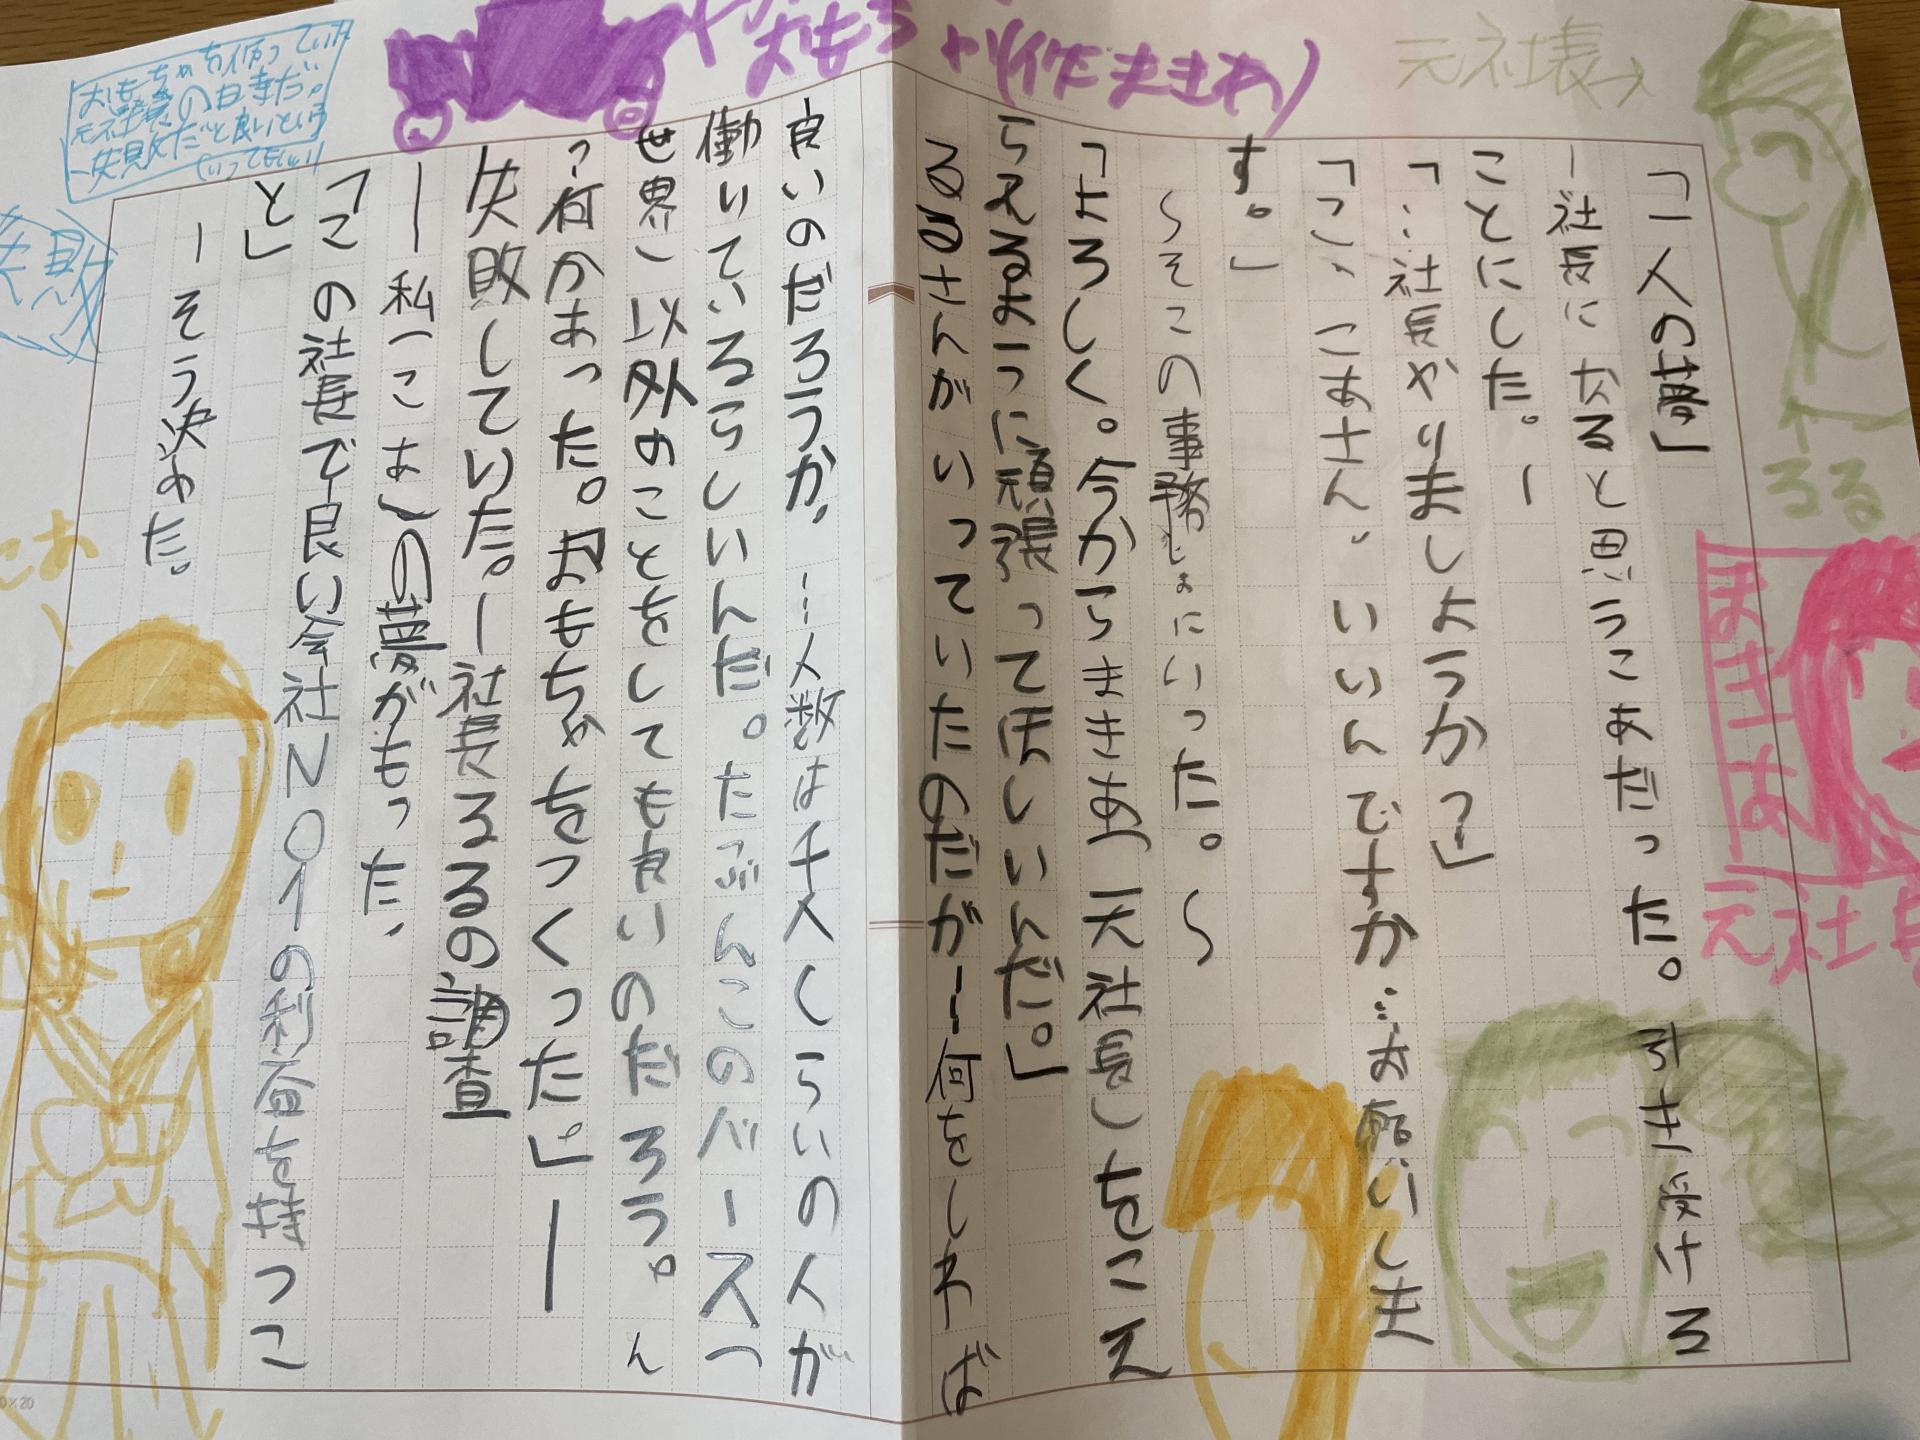 「一人の夢」
ー社長になると思うこあだった。引き受ける
ことにした。ー
「…社長やりましようか？」
「こ、こあさん。いいんですか…お願いしま
す。」
〜そこの事務しょにいった。〜
「よろしく。今からまきあ(元社長)をこえ
らえるように頑張ってほしいんだ。」
るるさんがいっていたのだがー何をしれば
良いのだろうか、…人数は千人くらいの人が
働いているらしいんだ。たぶんこのバース(
世界)以外のことをしても良いのだろう。ん
？何かあった。「おもちゃをつくった。」ー
失敗していた。ー社長るるの調査
ー私(こあ)の夢がもった、
「この社長で良い会社NO1の利谷を持つこ
と」
ーそう決めた。
元社長→
るる
まきあ
元社長
おもち
(作だまきあ)
おもちゃを作っていた
元社長の仕事だ。
失敗だと良いという
失敗
こあ